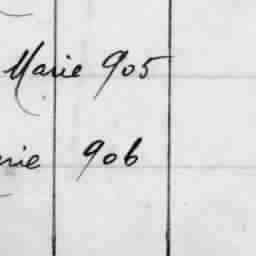 Marie 905
rie 906